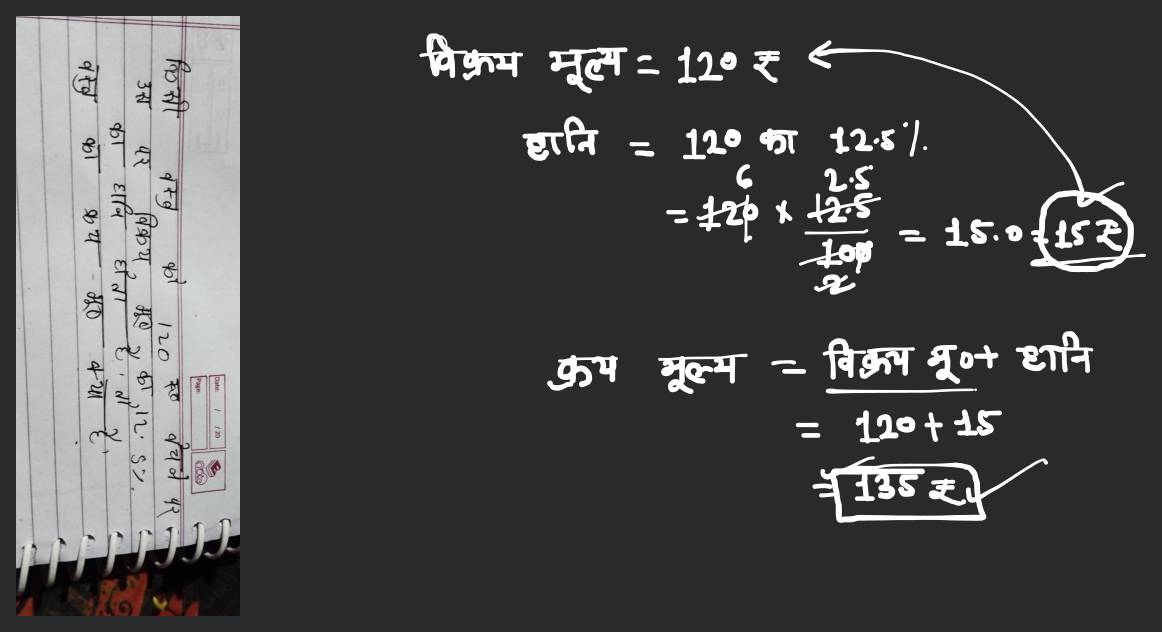 किसी वस्तु को 120 रू0 बेचने पर
उस पर विक्रय मू0 का 12.5%
का हानि होता है, तो
वस्तु का क्रय-मू0 क्या है,
Date: / /20
Page:
विक्रय मूल्य = 120 ₹
हानि = 120 का 12.5%
6 2.5
= 120 × 12.5 = 15.0 = 15 ₹
100
2
क्रय मूल्य = विक्रय मू0 + हानि
= 120 + 15
= 135 ₹